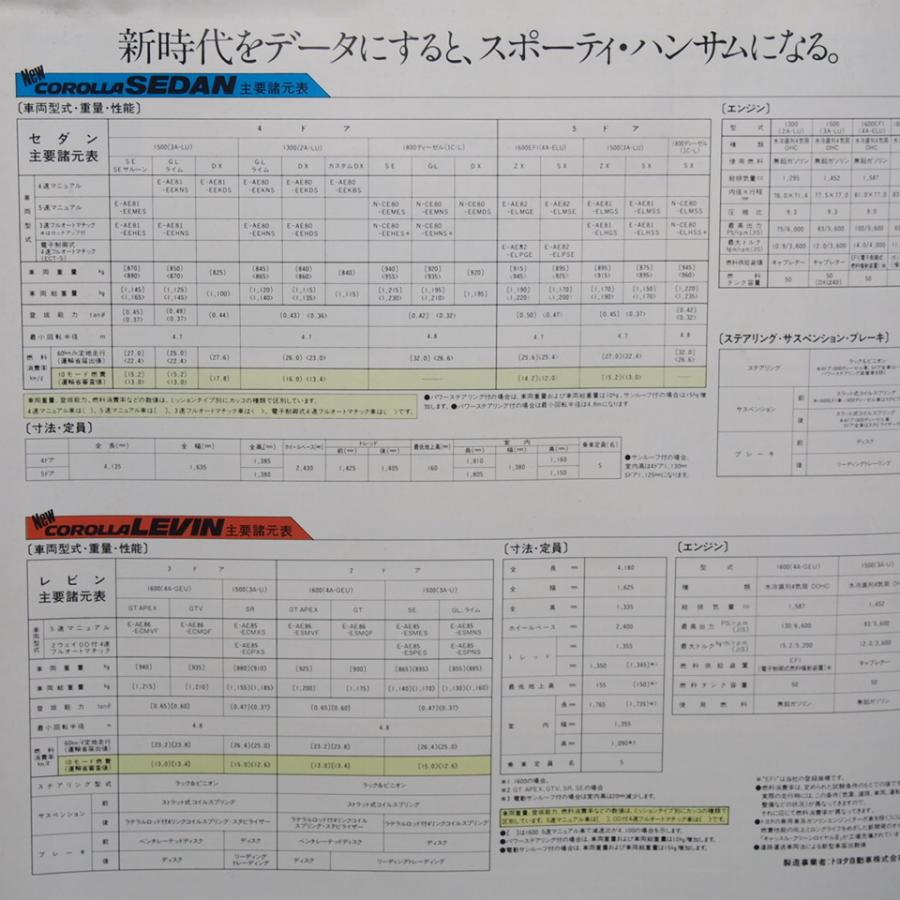 新時代をデータにすると、スポーティ・ハンサムになる。
New COROLLA SEDAN 主要諸元表
〔車両型式・重量・性能〕
セダン 主要諸元表
4ドア 5ドア
1500(3A-LU) 1300(2A-LU) 1800ディーゼル(1C-L) 1600EFI(4A-ELU) 1500(3A-LU) 1800ディーゼル(1C-L)
SE SEサルーン GL ライム DX GL ライム DX カスタムDX SE GL DX ZX SX ZX SX SX
車両型式
4速マニュアル E-AE81-EEKNS E-AE81-EEKDS E-AE80-EEKNS E-AE80-EEKDS E-AE80-EEKBS
5速マニュアル E-AE81-EEMES N-CE80-EEMES N-CE80-EEMNS N-CE80-EEMDS E-AE82-ELMGE E-AE82-ELMSE E-AE81-ELMGS E-AE81-ELMSS N-CE80-ELMSS
3速フルオートマチック *はロックアップ付 E-AE81-EEHES E-AE81-EEHNS E-AE80-EEHNS E-AE80-EEHDS N-CE80-EEHES* N-CE80-EEHNS* E-AE81-ELHGS E-AE81-ELHSS N-CE80-ELHSS*
電子制御式4速フルオートマチック(ECT-S) E-AE82-ELPGE E-AE82-ELPSE
車両重量 kg [870]<890> [850]<870> (825) (845)<865> (840)<860> (840) [940]<955> [920]<935> [920] [915]<945> [895]<925> [895]<915> [875]<895> [945]<960>
車両総重量 kg [1,145]<1,165> [1,125]<1,145> (1,100) (1,120)<1,140> (1,115)<1,135> (1,115) [1,215]<1,230> [1,195]<1,210> [1,195] [1,190]<1,220> [1,170]<1,200> [1,170]<1,190> [1,150]<1,170> [1,220]<1,235>
登坂能力 tanθ [0.45]<0.37> [0.49]<0.37> (0.44) (0.43)<0.36> [0.42]<0.32> [0.50]<0.47> [0.45]<0.37> [0.42]<0.32>
最小回転半径 m 4.7 4.7 4.8 4.7 4.8
燃料消費率 km/ℓ
60km/h定地走行(運輸省届出値) [27.0]<22.4> [25.0]<22.4> (27.6) (26.0)<23.0> [32.0]<26.6> [25.6]<25.4> [27.0]<22.4> [32.0]<26.6>
10モード燃費(運輸省審査値) [15.2]<13.0> [15.2]<13.0> (17.8) (16.0)<13.4> [14.2]<12.0> [15.2]<13.0>
車両重量、登坂能力、燃料消費率などの数値は、ミッションタイプ別にカッコの種類で区別しています。
4速マニュアル車は( )、5速マニュアル車は[ ]、3速フルオートマチック車は< >、電子制御式4速フルオートマチック車は〈 〉です。
●パワーステアリング付の場合は、車両重量および車両総重量は10kg、サンルーフ付の場合は15kg増加します。●パワーステアリング付の場合は最小回転半径は4.8mになります。
〔寸法・定員〕
全長(mm) 全幅(mm) 全高(mm) ホイールベース(mm) トレッド 前(mm) 後(mm) 最低地上高(mm) 室内 長(mm) 幅(mm) 高(mm) 乗車定員(名)
4ドア 4,135 1,635 1,385 2,430 1,425 1,405 160 1,810 1,380 1,160 5
5ドア 1,380 1,805 1,150
●サンルーフ付の場合、
室内高は4ドア1,130mm
5ドア1,125mmになります。
〔エンジン〕
型式 1300(2A-LU) 1500(3A-LU) 1600EFI(4A-ELU)
種類 水冷直列4気筒OHC 水冷直列4気筒OHC 水冷直列4気筒OHC
使用燃料 無鉛ガソリン 無鉛ガソリン 無鉛ガソリン
総排気量 cc 1,295 1,452 1,587
内径×行程 mm 76.0×71.4 77.5×77.0 81.0×77.0
圧縮比 9.3 9.3 9.0
最高出力 PS/r.p.m.(JIS) 75/6,000 83/5,600 100/5,600
最大トルク kg-m/r.p.m.(JIS) 10.9/3,600 12.0/3,600 14.0/4,000
燃料供給装置 キャブレター キャブレター EFI(電子制御式燃料噴射装置)※
燃料タンク容量 50 50(DXは40) 50
〔ステアリング・サスペンション・ブレーキ〕
ステアリング ラック&ピニオン
サスペンション 前 ストラット式コイルスプリング
後 ストラット式コイルスプリング
ブレーキ 前 ディスク
後 リーディングトレーリング
New COROLLA LEVIN 主要諸元表
〔車両型式・重量・性能〕
レビン 主要諸元表
3ドア 2ドア
1600(4A-GEU) 1500(3A-U) 1600(4A-GEU) 1500(3A-U)
GT APEX GTV SR GT APEX GT SE GL、ライム
車両型式
5速マニュアル E-AE86-ECMVF E-AE86-ECMQF E-AE85-ECMXS E-AE86-ESMVF E-AE86-ESMQF E-AE85-ESMES E-AE85-ESMNS
2ウェイOD付4速フルオートマチック E-AE85-ECPXS E-AE85-ESPES E-AE85-ESPNS
車両重量 kg [940] [935] [880]<910> [925] [900] [865]<895> [855]<885>
車両総重量 kg [1,215] [1,210] [1,155]<1,185> [1,200] [1,175] [1,140]<1,170> [1,130]<1,160>
登坂能力 tanθ [0.65]{0.60} [0.47]<0.37> [0.65]{0.60} [0.47]<0.37>
最小回転半径 m 4.8 4.8
燃料消費率 km/ℓ
60km/h定地走行(運輸省届出値) [23.2]{23.8} [26.4]<25.0> [23.2]{23.8} [26.4]<25.0>
10モード燃費(運輸省審査値) [13.0]{13.4} [15.0]<12.6> [13.0]{13.4} [15.0]<12.6>
ステアリング型式 ラック&ピニオン ラック&ピニオン
サスペンション 前 ストラット式コイルスプリング ストラット式コイルスプリング
後 ラテラルロッド付4リンクコイルスプリング・スタビライザー ラテラルロッド付4リンクコイルスプリング・スタビライザー ラテラルロッド付4リンクコイルスプリング
ブレーキ 前 ベンチレーテッドディスク ディスク ベンチレーテッドディスク ディスク
後 ディスク リーディングトレーリング ディスク リーディングトレーリング
〔寸法・定員〕
全長 mm 4,180
全幅 mm 1,625
全高 mm 1,335
ホイールベース mm 2,400
トレッド 前 mm 1,355
後 mm 1,350 (1,345)*1
最低地上高 mm 155 (150)*1
室内 長 mm 1,765 (1,735)*2
幅 mm 1,355
高 mm 1,090*3
乗車定員 名 5
*1 1600の場合。
*2 GT APEX、GTV、SR、SEの場合
*3 電動サンルーフ付の場合は室内高は20mm減少します。
車両重量、登坂能力、燃料消費率などの数値は、ミッションタイプ別にカッコの種類で
区別しています。5速マニュアル車は[ ]、OD付4速フルオートマチック車は< >です。
●{ }は1600 5速マニュアル車で減速比が4.100の場合を示します。
●パワーステアリング付の場合は、車両重量および車両総重量は10kg増加します。
●電動サンルーフ付の場合は、車両重量および車両総重量は15kg増加します。
〔エンジン〕
型式 1600(4A-GEU) 1500(3A-U)
種類 水冷直列4気筒 DOHC 水冷直列4気筒 OHC
総排気量 cc 1,587 1,452
最高出力 PS/r.p.m.(JIS) 130/6,600 83/5,600
最大トルク kg-m/r.p.m.(JIS) 15.2/5,200 12.0/3,600
燃料供給装置 EFI(電子制御式燃料噴射装置)※ キャブレター
燃料タンク容量 ℓ 50 50
使用燃料 無鉛ガソリン 無鉛ガソリン
※"EFI"は当社の登録商標です。
●燃料消費率は、定められた試験条件のもとでの値で
実際の走行時には、この条件(気象、道路、車両、運転
整備などの状況)が異なってきますので、
それに応じて燃料消費率が異なってきます。
●道路運送車両法による新型車届出数値
製造事業者：トヨタ自動車株式会